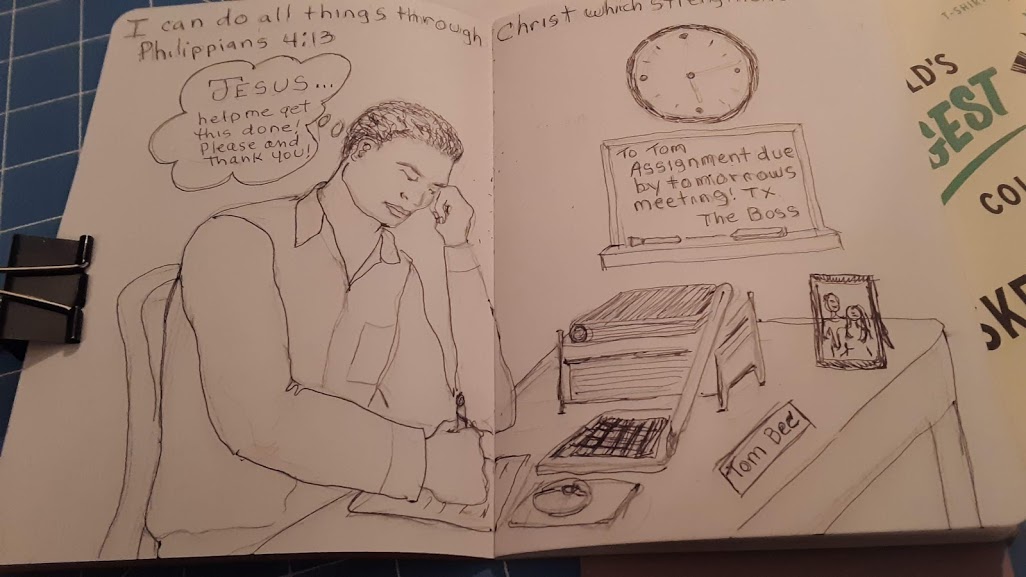 I can do all things through Christ which
Philippians 4:13
JESUS...
help me get
this done!
Please and
thank you!
To Tom
Assignment due
by tomorrows
meeting! TX
The Boss
Tom Bee
T-SHIRT
LD'S
GEST
COL
SKE